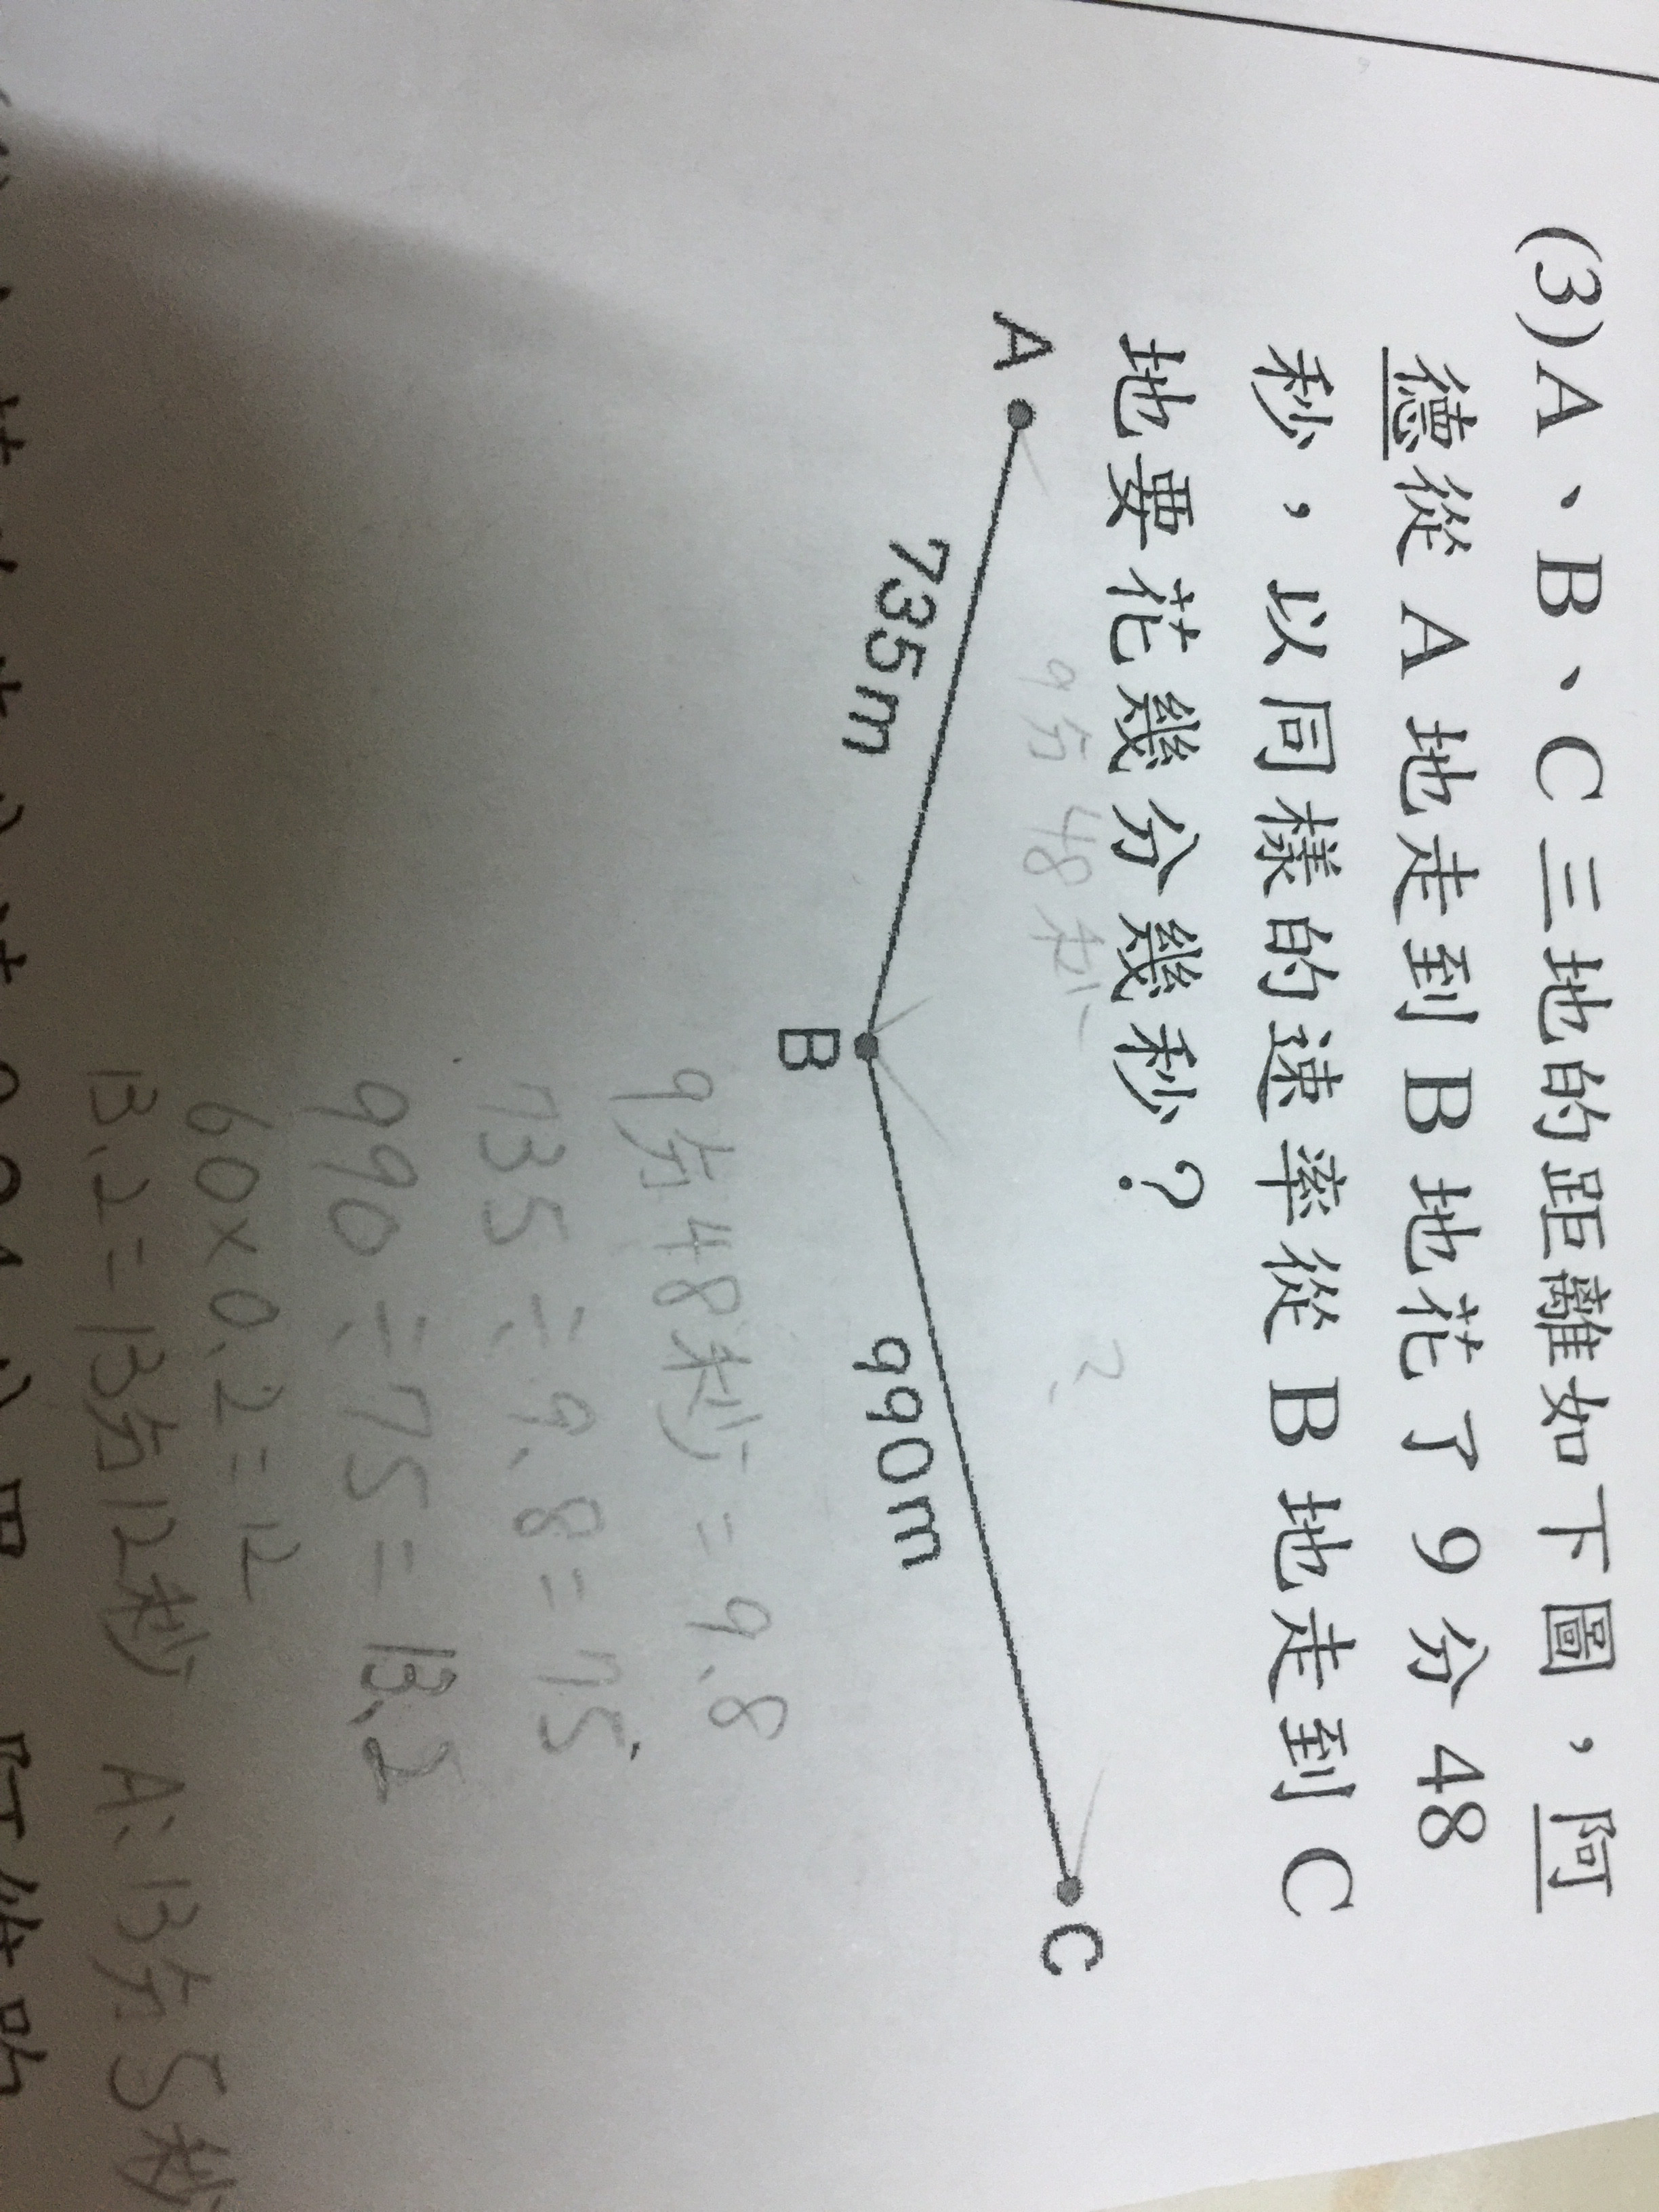 (3)A、B、C三地的距離如下圖，阿
德從A地走到B地花了9分48
秒，以同樣的速率從B地走到C
地要花幾分幾秒？
9分48秒
?
A
735m
B
990m
C
9分48秒=9.8
735÷9.8=75
990÷75=13.2
60×0.2=12
13.2=13分12秒 A:13分5秒